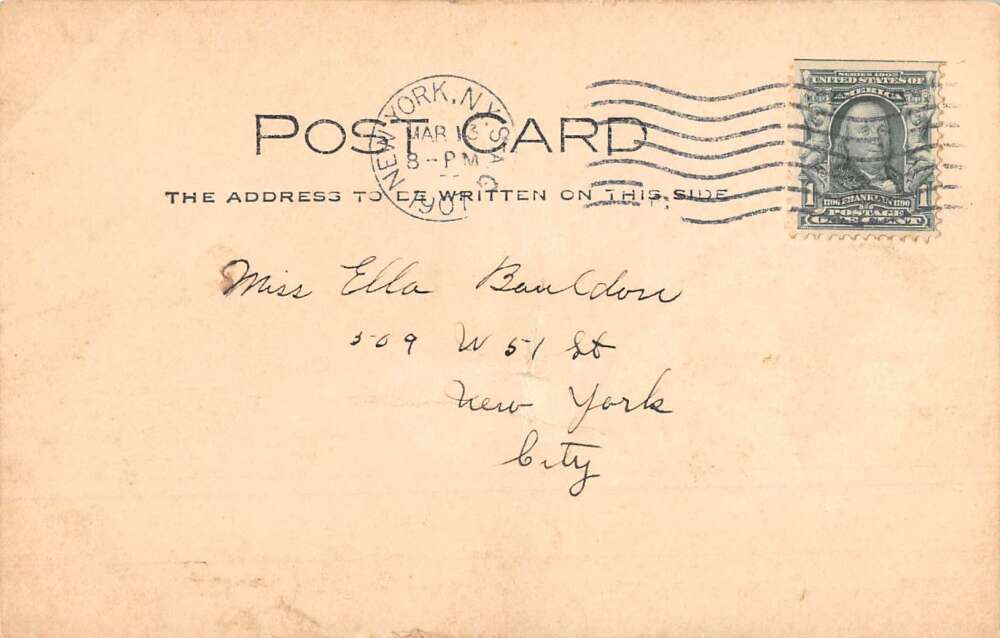 SERIES 1902
UNITED STATES OF
AMERICA
NEW YORK, N.Y. STA. G
MAR 13
8 - PM
POST CARD
THE ADDRESS TO BE WRITTEN ON THIS SIDE
1 1706 FRANKLIN 1790 1
POSTAGE
ONE CENT
Miss Ella Bauldon
509 W 51 St
New York
City